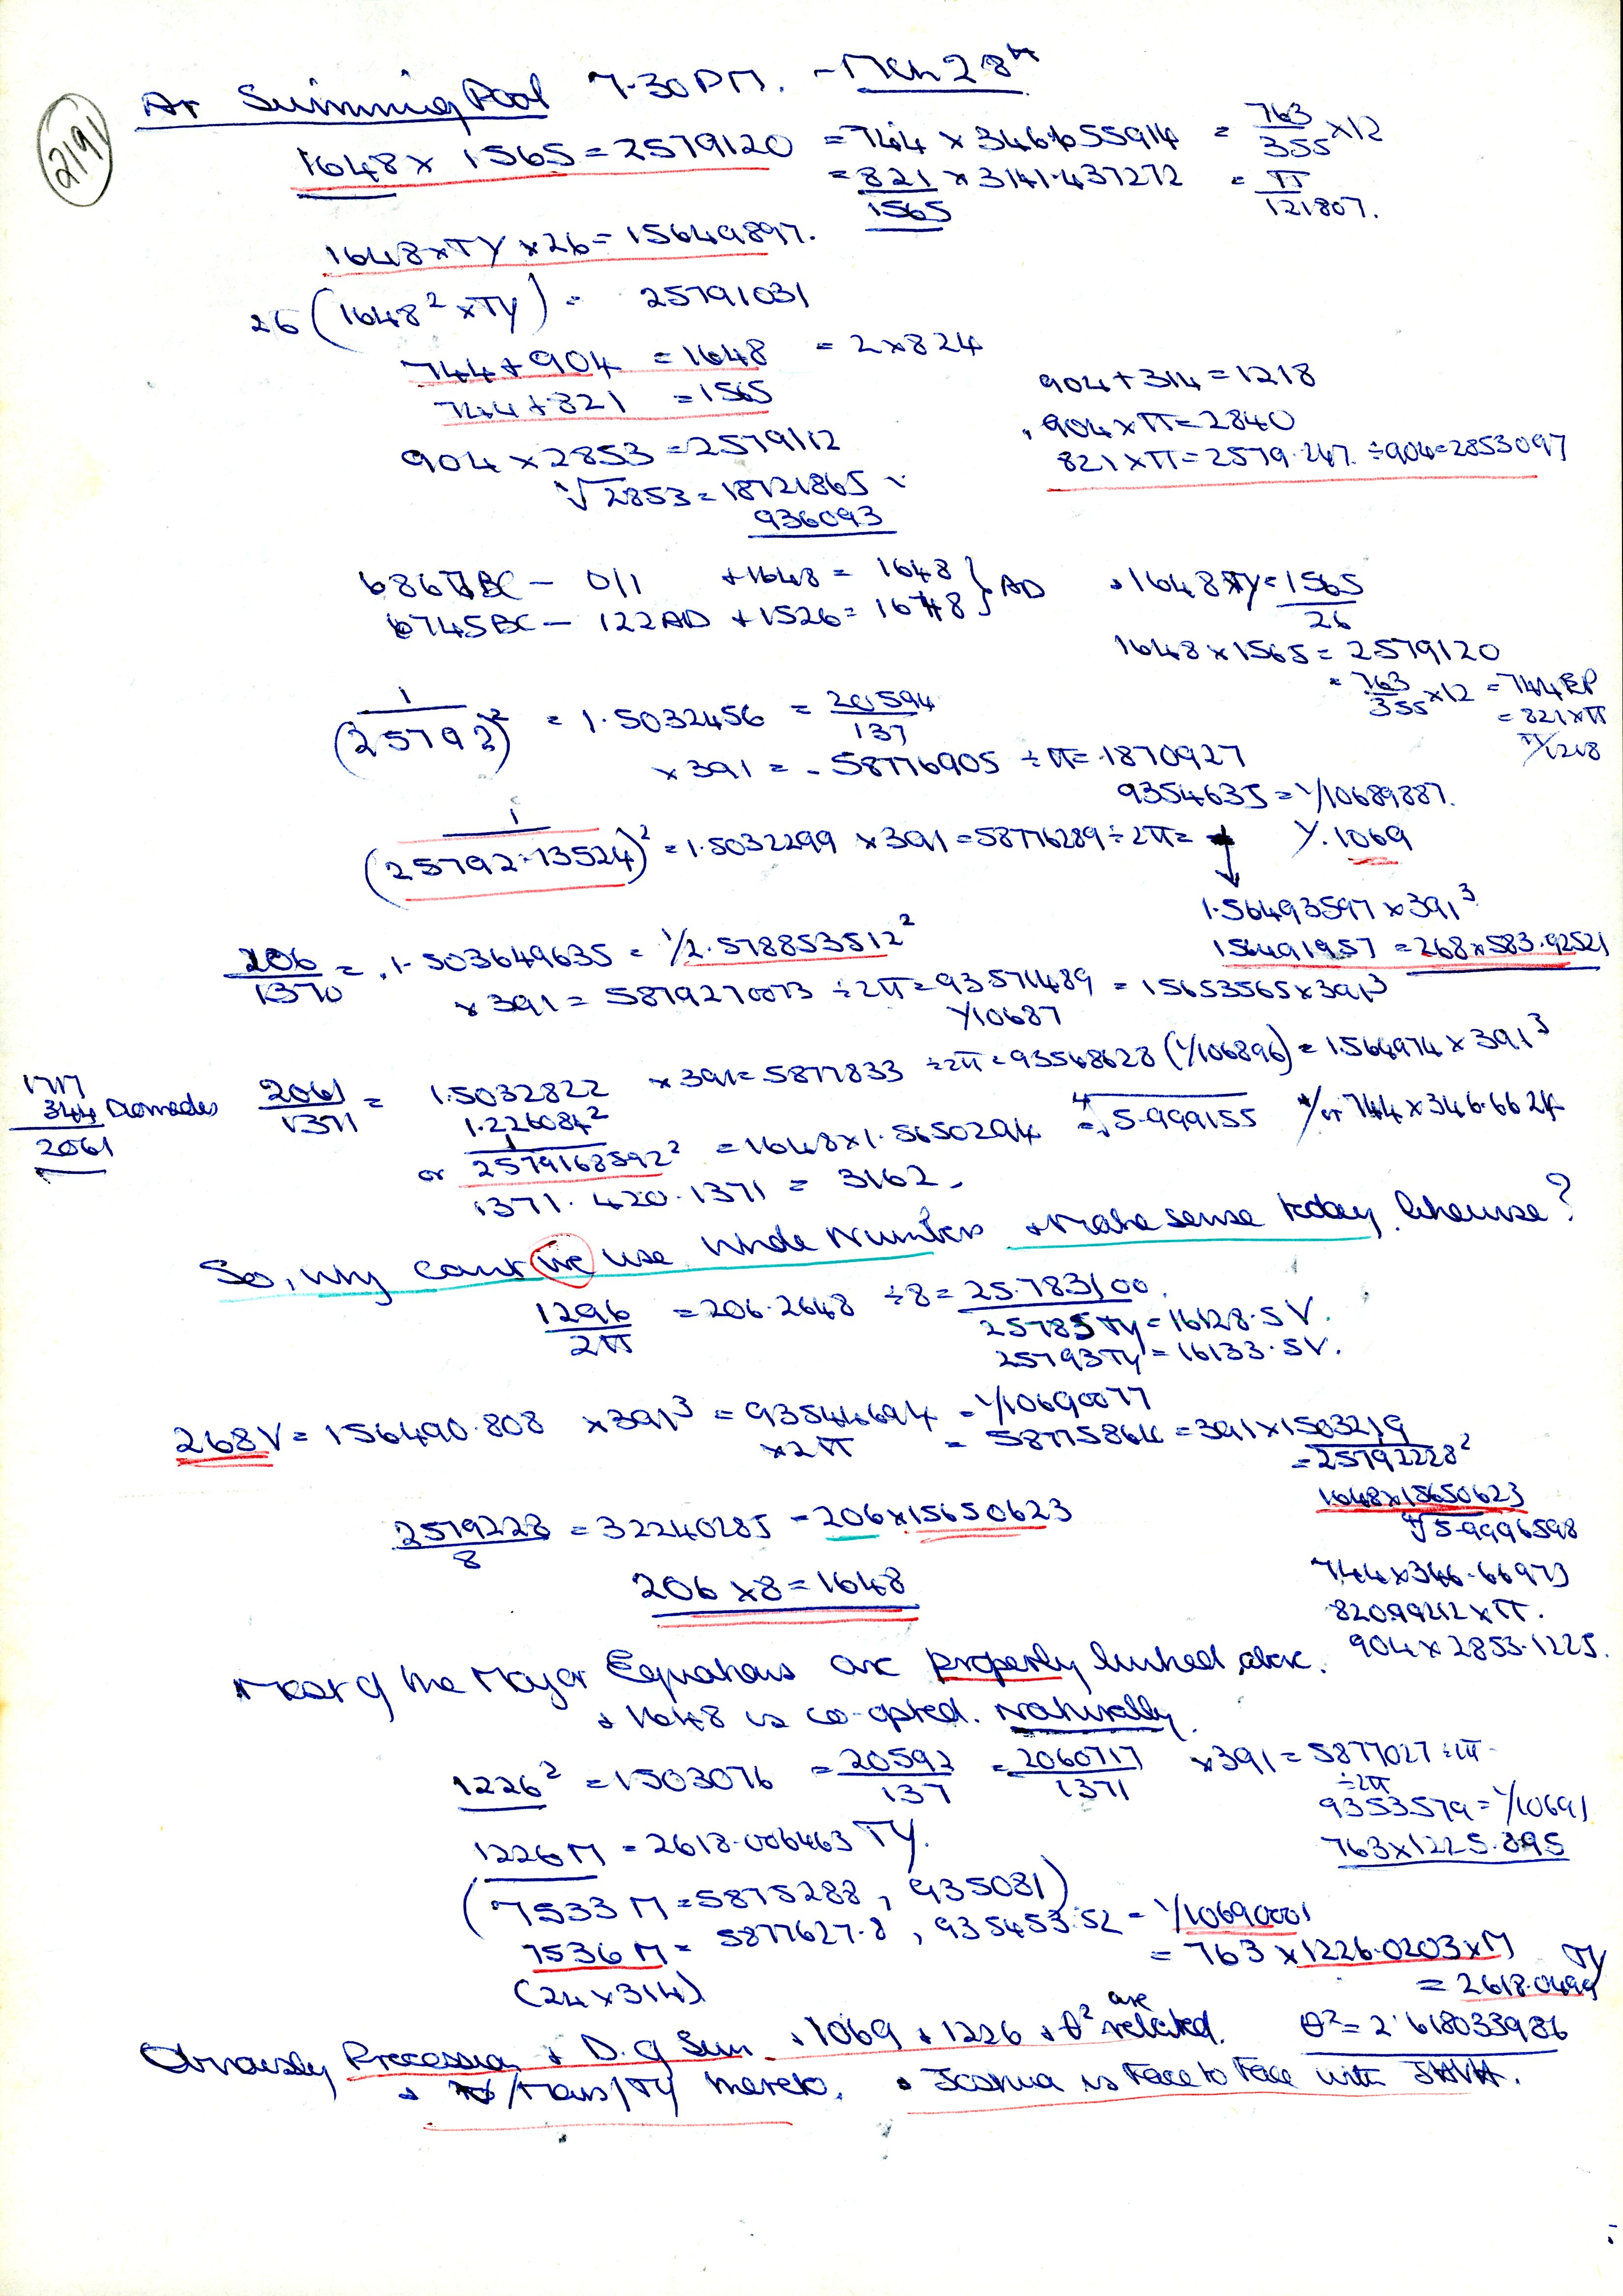 2191
At Swimming Pool 7.30PM. - Mch 28th
1648 x 1565 = 2579120 = 744 x 346655914 = 763/355 x 12
= 821/1565 x 3141.437272 = π/121807.
1648 x TY x 26 = 15649897.
26 (1648² x TY) = 25791031
744 + 904 = 1648 = 2 x 824
744 + 821 = 1565
904 + 314 = 1218
904 x 2853 = 2579112
. 904 x π = 2840
821 x π = 2579.247. ÷ 904 = 2853097
√2853 = 18721865
936093
BC - 011 + 1648 = 1648 } AD
6745BC - 122AD + 1526 = 1648 } AD
1648 TY = 1565/26
1648 x 1565 = 2579120
= 763/355 x 12 = 744 EP
= 821 x π
π/1218
1/(25792)² = 1.5032456 = 20594/137
x 391 = . 58776905 ÷ π = .1870927
9354635 = 1/10689887.
1/(25792.13524)² = 1.5032299 x 391 = 58776289 ÷ 2π = ↓ 1/.1069
1.56493597 x 391³
156491957 = 268 x 583.92521
206/1370 = .1.503649635 = 1/2.578853512²
x 391 = 5879270073 ÷ 2π = 93571489 = 15653565 x 391³
1/10687
1717
344 Diomedes
2061
2061/1371 = 1.5032822 x 391 = 5877833 ÷ 2π = 93548628 (1/106896) = 1.564974 x 391³
1.226084²
or 1/2579168592² = 1648 x 1.5650294 = ⁴√5.999155 or 744 x 346.6624
1371. 420. 1371 = 3162.
So, why cant we use Whole Numbers + Make sense today likewise?
1296/2π = 206.2648 ÷ 8 = 25.783100
25785 TY = 16128.5 V.
25793 TY = 16133.5 V.
268V = 156490.808 x 391³ = 93544694 = 1/10690077
x 2π = 58775864 = 391 x 1503219
= 25792228²
1648 x 15650623
⁴√5.9996598
744 x 346.66973
82099212 x π.
904 x 2853.1225.
2579223/8 = 32240285 = 206 x 15650623
206 x 8 = 1648
Most of the Major Equations are properly linked above.
+ 1648 is co-opted. Naturally.
1226² = 1503076 = 20592/137 = 2060717/1371 x 391 = 5877027 ÷ 2π
÷ 2π
9353579 = 1/10691
763 x 1225.895
1226 M = 2618.006463 TY.
(7533 M = 5875288, 935081)
7536 M = 5877627.8, 935453.52 = 1/10690001
(24 x 314)
= 763 x 1226.0203 x M
TY
= 2618.0499
Obviously Precession + D. of Sun + 1069 + 1226 + θ² are related. θ² = 2.618033986
+ /Mars/TY thereto. + Joshua is Face to Face with JHVH.